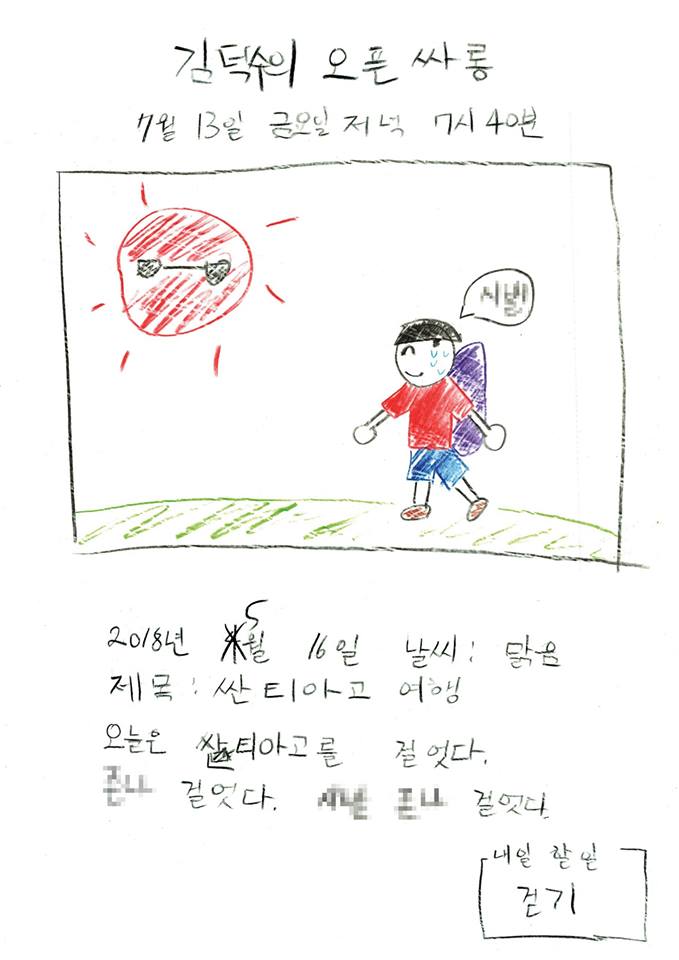 김덕수의 오픈 싸롱
7월 13일 금요일 저녁 7시 40분
2018년 5월 16일 날씨: 맑음
제목: 싼티아고 여행
오늘은 싼티아고를 걸었다.
걸었다. 걸었다.
내일 할 일
걷기